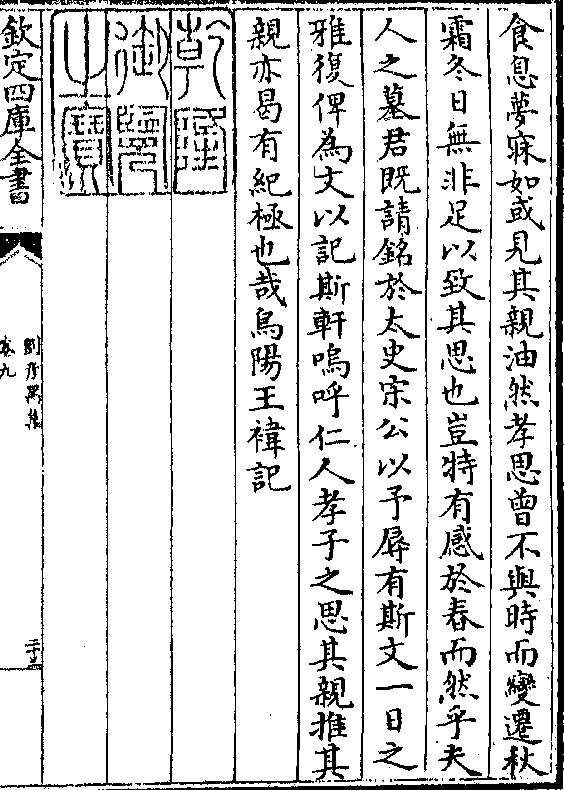 食息夢寐如或見其親油然孝思曾不與時而變遷秋
霜冬日無非足以致其思也豈特有感於春而然乎夫
人之墓君既請銘於太史宋公以予辱有斯文一日之
雅復俾為文以記斯軒嗚呼仁人孝子之思其親推其
親亦曷有紀極也哉烏陽王褘記
乾隆
御覽
之寶
欽定四庫全書
卷九